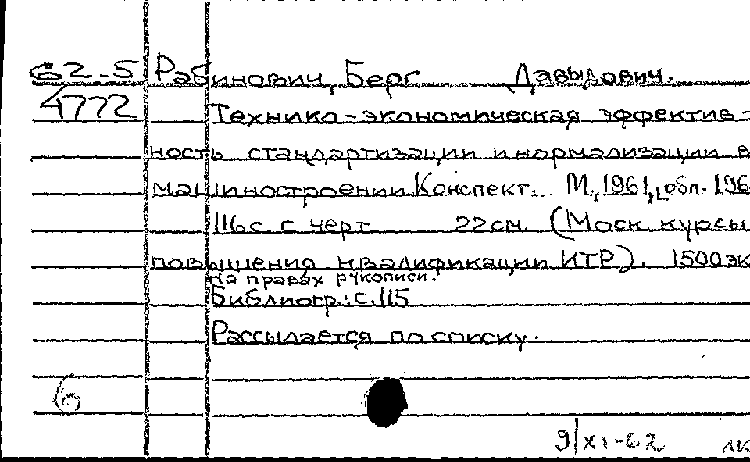 62-5 Рабинович, Берг Давыдович.
4772 Технико-экономическая эффектив-
ность стандартизации и нормализации в
машиностроении. Конспект. М., 1961, [обл. 196
116 с. с черт. 22 см. (Моск. курсы
повышения квалификации ИТР). 1500 эк
На правах рукописи.
Библиогр.: с. 115
Рассылается по списку.
6
9/XI-62